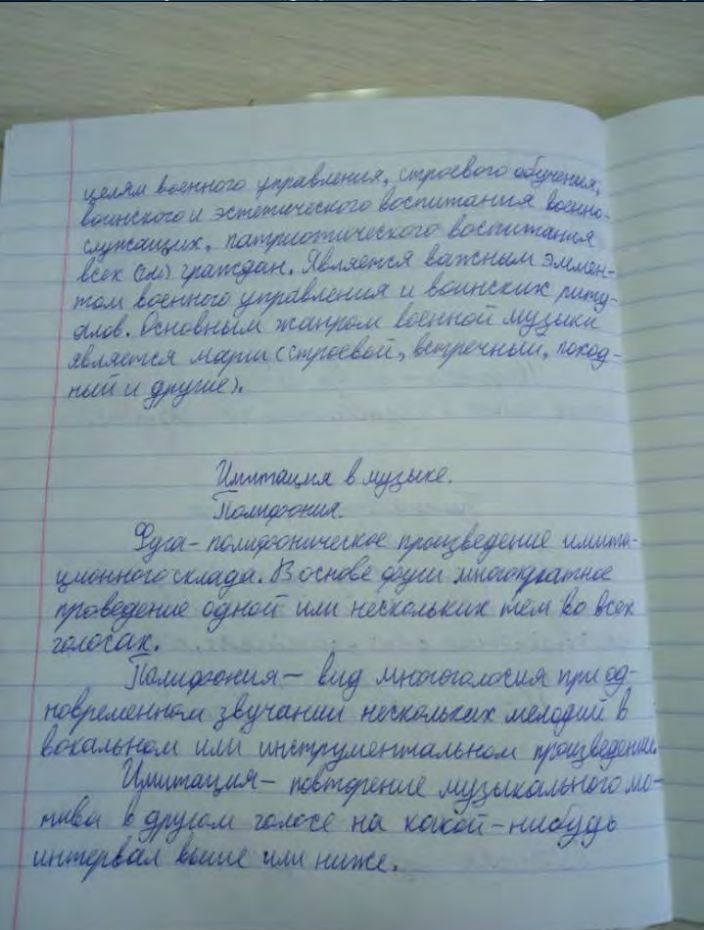 целям военного управления, строевого обучения,
воинского и эстетического воспитания военно-
служащих, патриотического воспитания
всех граждан. Является важным элемен-
том военного управления и воинских риту-
алов. Основным жанром военной музыки
является марш (строевой, встречный, поход-
ный и другие).
Имитация в музыке.
Полифония.
Фуга - полифоническое произведение имита-
ционного склада. В основе фуги многократное
проведение одной или нескольких тем во всех
голосах.
Полифония - вид многоголосия при од-
новременном звучании нескольких мелодий в
вокальном или инструментальном произведении.
Имитация - повторение музыкального мо-
тива в другом голосе на какой-нибудь
интервал выше или ниже.